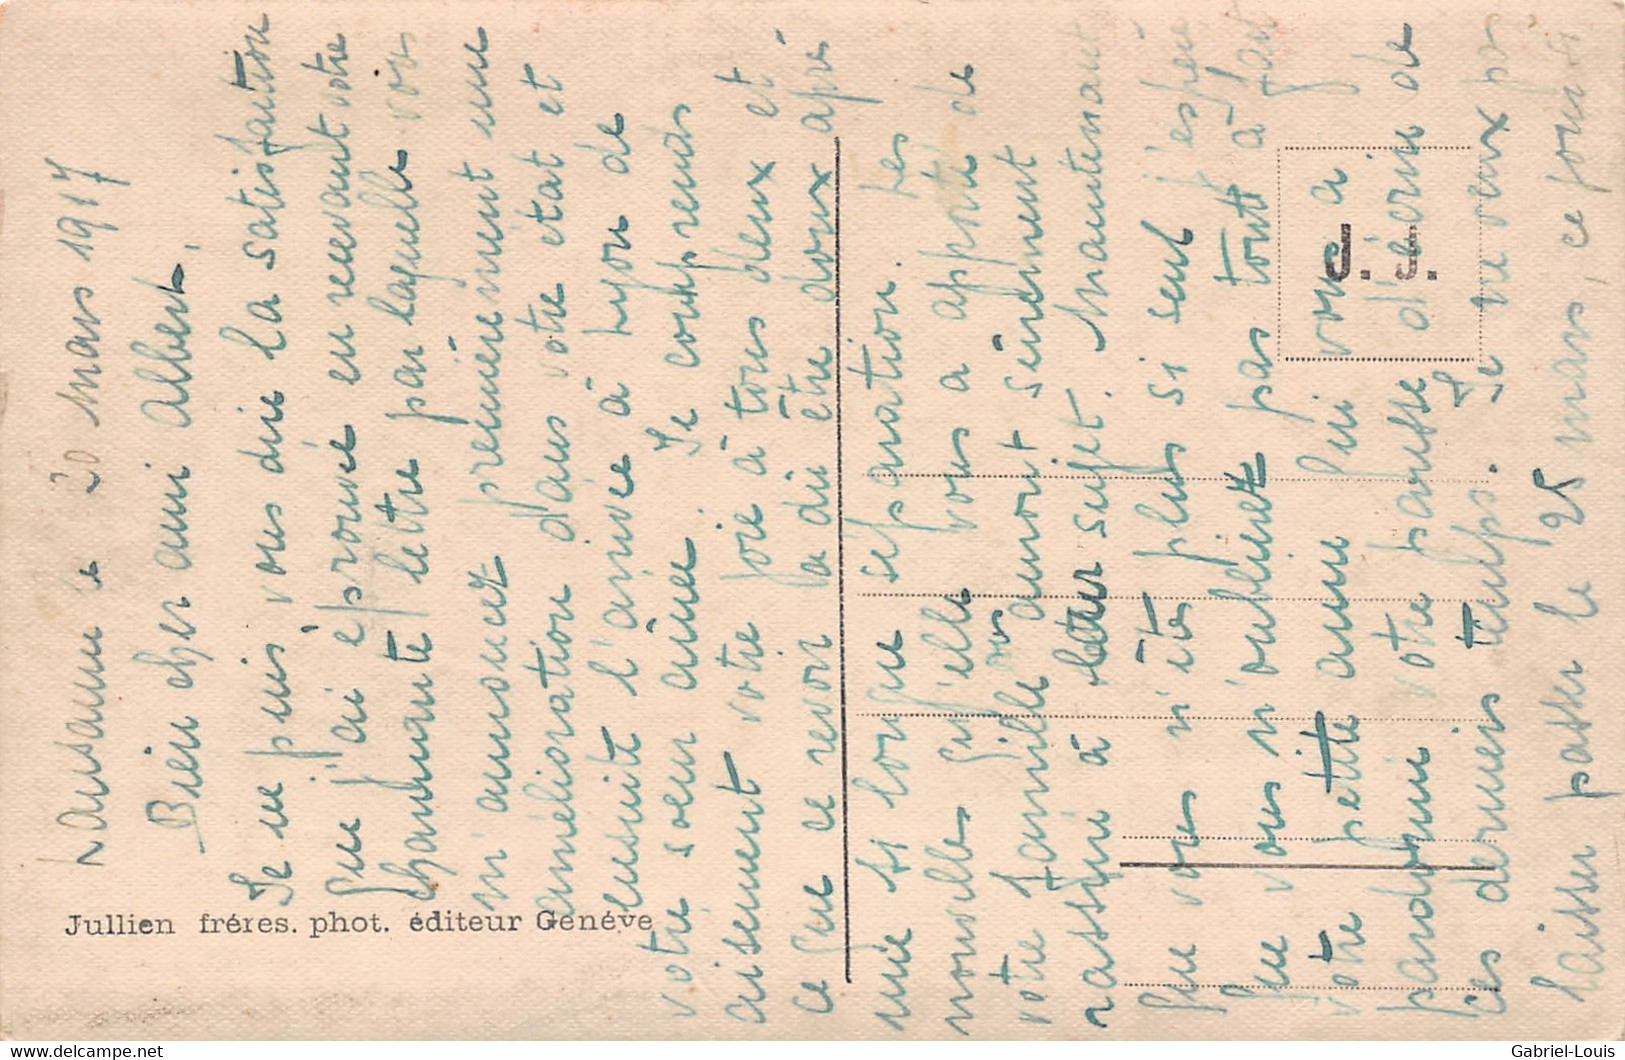 Lausanne le 20 Mars 1917
Bien cher ami Albert,
Je ne puis vous dire la satisfaction
que j'ai éprouvé en recevant votre
charmante lettre par laquelle vous
m'annoncez premièrement une
amélioration dans votre état et
ensuite l'arrivée à Lyon de
votre soeur aînée. Je comprends
aisement votre joie à tous deux et
ce que ce revoir la dû être doux après
une si longue séparation. Les
nouvelles qu'elle vous a apporté de
votre famille vous auront sûrement
rassuré à leur sujet. Maintenant
que vous n'êtes plus si seul j'espère
que vous n'oublierez pas tout à fait
votre petite amie qui vous a
pardonné votre paresse d'écrire de
ces derniers temps. Je ne veux pas
laisser passer le 25 mars, ce jour
Jullien fréres. phot. éditeur Genéve
J. J.
Gabriel-Louis
www.delcampe.net